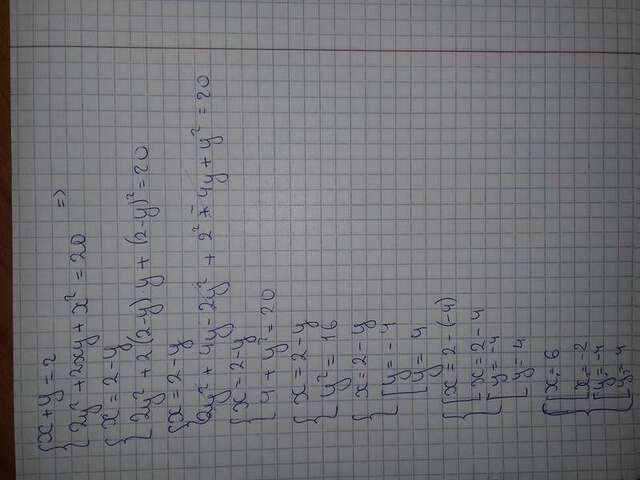 x + y = 2
2y² + 2xy + x² = 20 =>
x = 2 - y
2y² + 2(2-y)·y + (2-y)² = 20
x = 2 - y
2y² + 4y - 2y² + 2² - 4y + y² = 20
x = 2 - y
4 + y² = 20
x = 2 - y
y² = 16
x = 2 - y
y = -4
y = 4
x = 2 - (-4)
x = 2 - 4
y = -4
y = 4
x = 6
x = -2
y = -4
y = 4